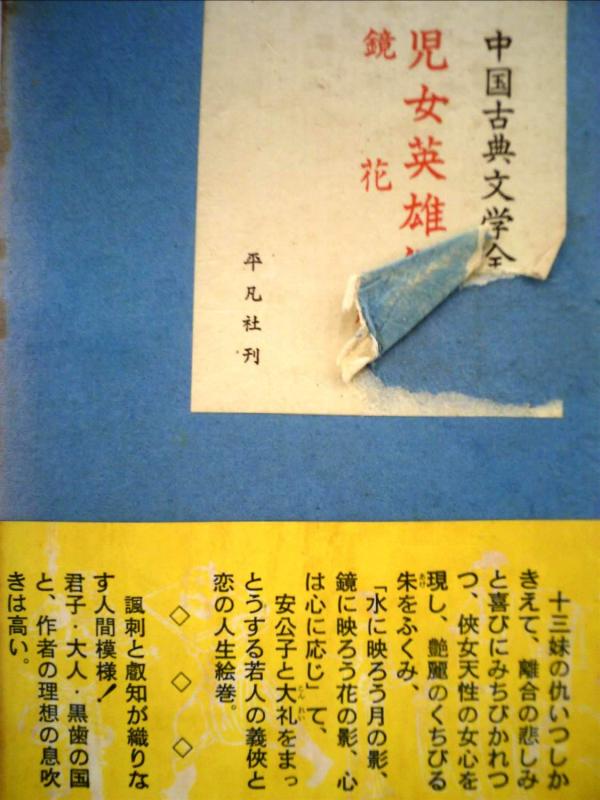 中国古典文学全
児女英雄
鏡花
平凡社刊
十三妹の仇いつしか
きえて、離合の悲しみ
と喜びにみちびかれつ
つ、俠女天性の女心を
現し、艶麗のくちびる
朱をふくみ、
「水に映ろう月の影、
鏡に映ろう花の影、心
は心に応じ」て、
安公子と大礼をまっ
とうする若人の義俠と
恋の人生絵巻。
◇◇◇
諷刺と叡知が織りな
す人間模様！
君子・大人・黒歯の国
と、作者の理想の息吹
きは高い。